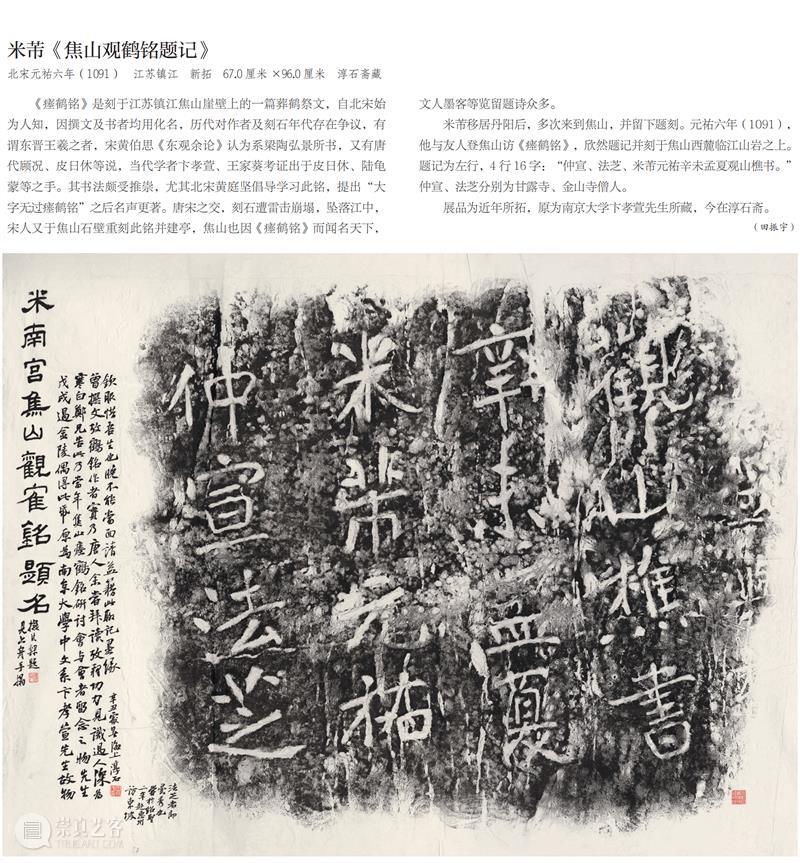 米芾《焦山观鹤铭题记》
北宋元祐六年（1091） 江苏镇江 新拓 67.0厘米×96.0厘米 淳石斋藏
《瘗鹤铭》是刻于江苏镇江焦山崖壁上的一篇葬鹤祭文，自北宋始
为人知，因撰文及书者均用化名，历代对作者及刻石年代存在争议，有
谓东晋王羲之者，宋黄伯思《东观余论》认为系梁陶弘景所书，又有唐
代顾况、皮日休等说，当代学者卞孝萱、王家葵考证出于皮日休、陆龟
蒙等之手。其书法颇受推崇，尤其北宋黄庭坚倡导学习此铭，提出“大
字无过瘗鹤铭”之后名声更著。唐宋之交，刻石遭雷击崩塌，坠落江中，
宋人又于焦山石壁重刻此铭并建亭，焦山也因《瘗鹤铭》而闻名天下，
文人墨客等览留题诗众多。
米芾移居丹阳后，多次来到焦山，并留下题刻。元祐六年（1091），
他与友人登焦山访《瘗鹤铭》，欣然题记并刻于焦山西麓临江山岩之上。
题记为左行，4行16字：“仲宣、法芝、米芾元祐辛未孟夏观山樵书。”
仲宣、法芝分别为甘露寺、金山寺僧人。
展品为近年所拓，原为南京大学卞孝萱先生所藏，今在淳石斋。
（田振宇）
仲宣法芝
米芾元祐
辛未孟夏
觀山樵書
米南宫焦山觀寉銘題名
戊戌過金陵偶得此紙原為南京大學中文系卞孝萱先生故物
寒白鄭兄告此乃當年焦山瘞鶴銘研討會与會者留念之物先生
曾撰文攷鶴銘作者實乃唐人余嘗拜讀攷釋切力見識過人深為
欽服惜吾生也晚不能當面請益籍此聊记墨缘
法芝者即
訪東坡
崇真艺客